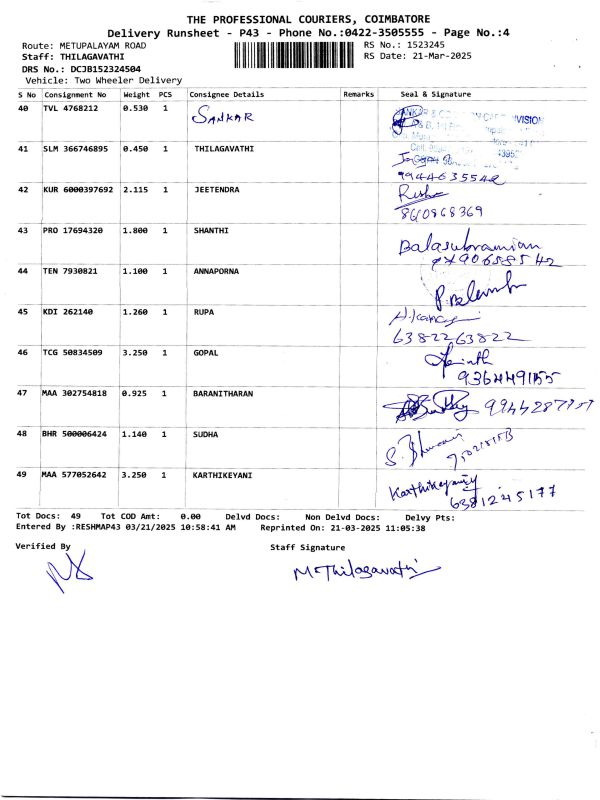 THE PROFESSIONAL COURIERS, COIMBATORE
Delivery Runsheet - P43 - Phone No.:0422-3505555 - Page No.:4
Route: METUPALAYAM ROAD RS No.: 1523245
Staff: THILAGAVATHI RS Date: 21-Mar-2025
DRS No.: DCJB152324504
Vehicle: Two Wheeler Delivery
S No Consignment No Weight PCS Consignee Details Remarks Seal & Signature
40 TVL 4768212 0.530 1 SANKAR
41 SLM 366746895 0.450 1 THILAGAVATHI
42 KUR 6000397692 2.115 1 JEETENDRA
43 PRO 17694320 1.800 1 SHANTHI Balasubramian
44 TEN 7930821 1.100 1 ANNAPORNA
45 KDI 262140 1.260 1 RUPA
6382263822
46 TCG 50834509 3.250 1 GOPAL
47 MAA 302754818 0.925 1 BARANITHARAN
48 BHR 500006424 1.140 1 SUDHA
49 MAA 577052642 3.250 1 KARTHIKEYANI Karthikeyaniy
6381245177
Tot Docs: 49 Tot COD Amt: 0.00 Delvd Docs: Non Delvd Docs: Delvy Pts:
Entered By :RESHMAP43 03/21/2025 10:58:41 AM Reprinted On: 21-03-2025 11:05:38
Verified By Staff Signature
M. Thilagavathi